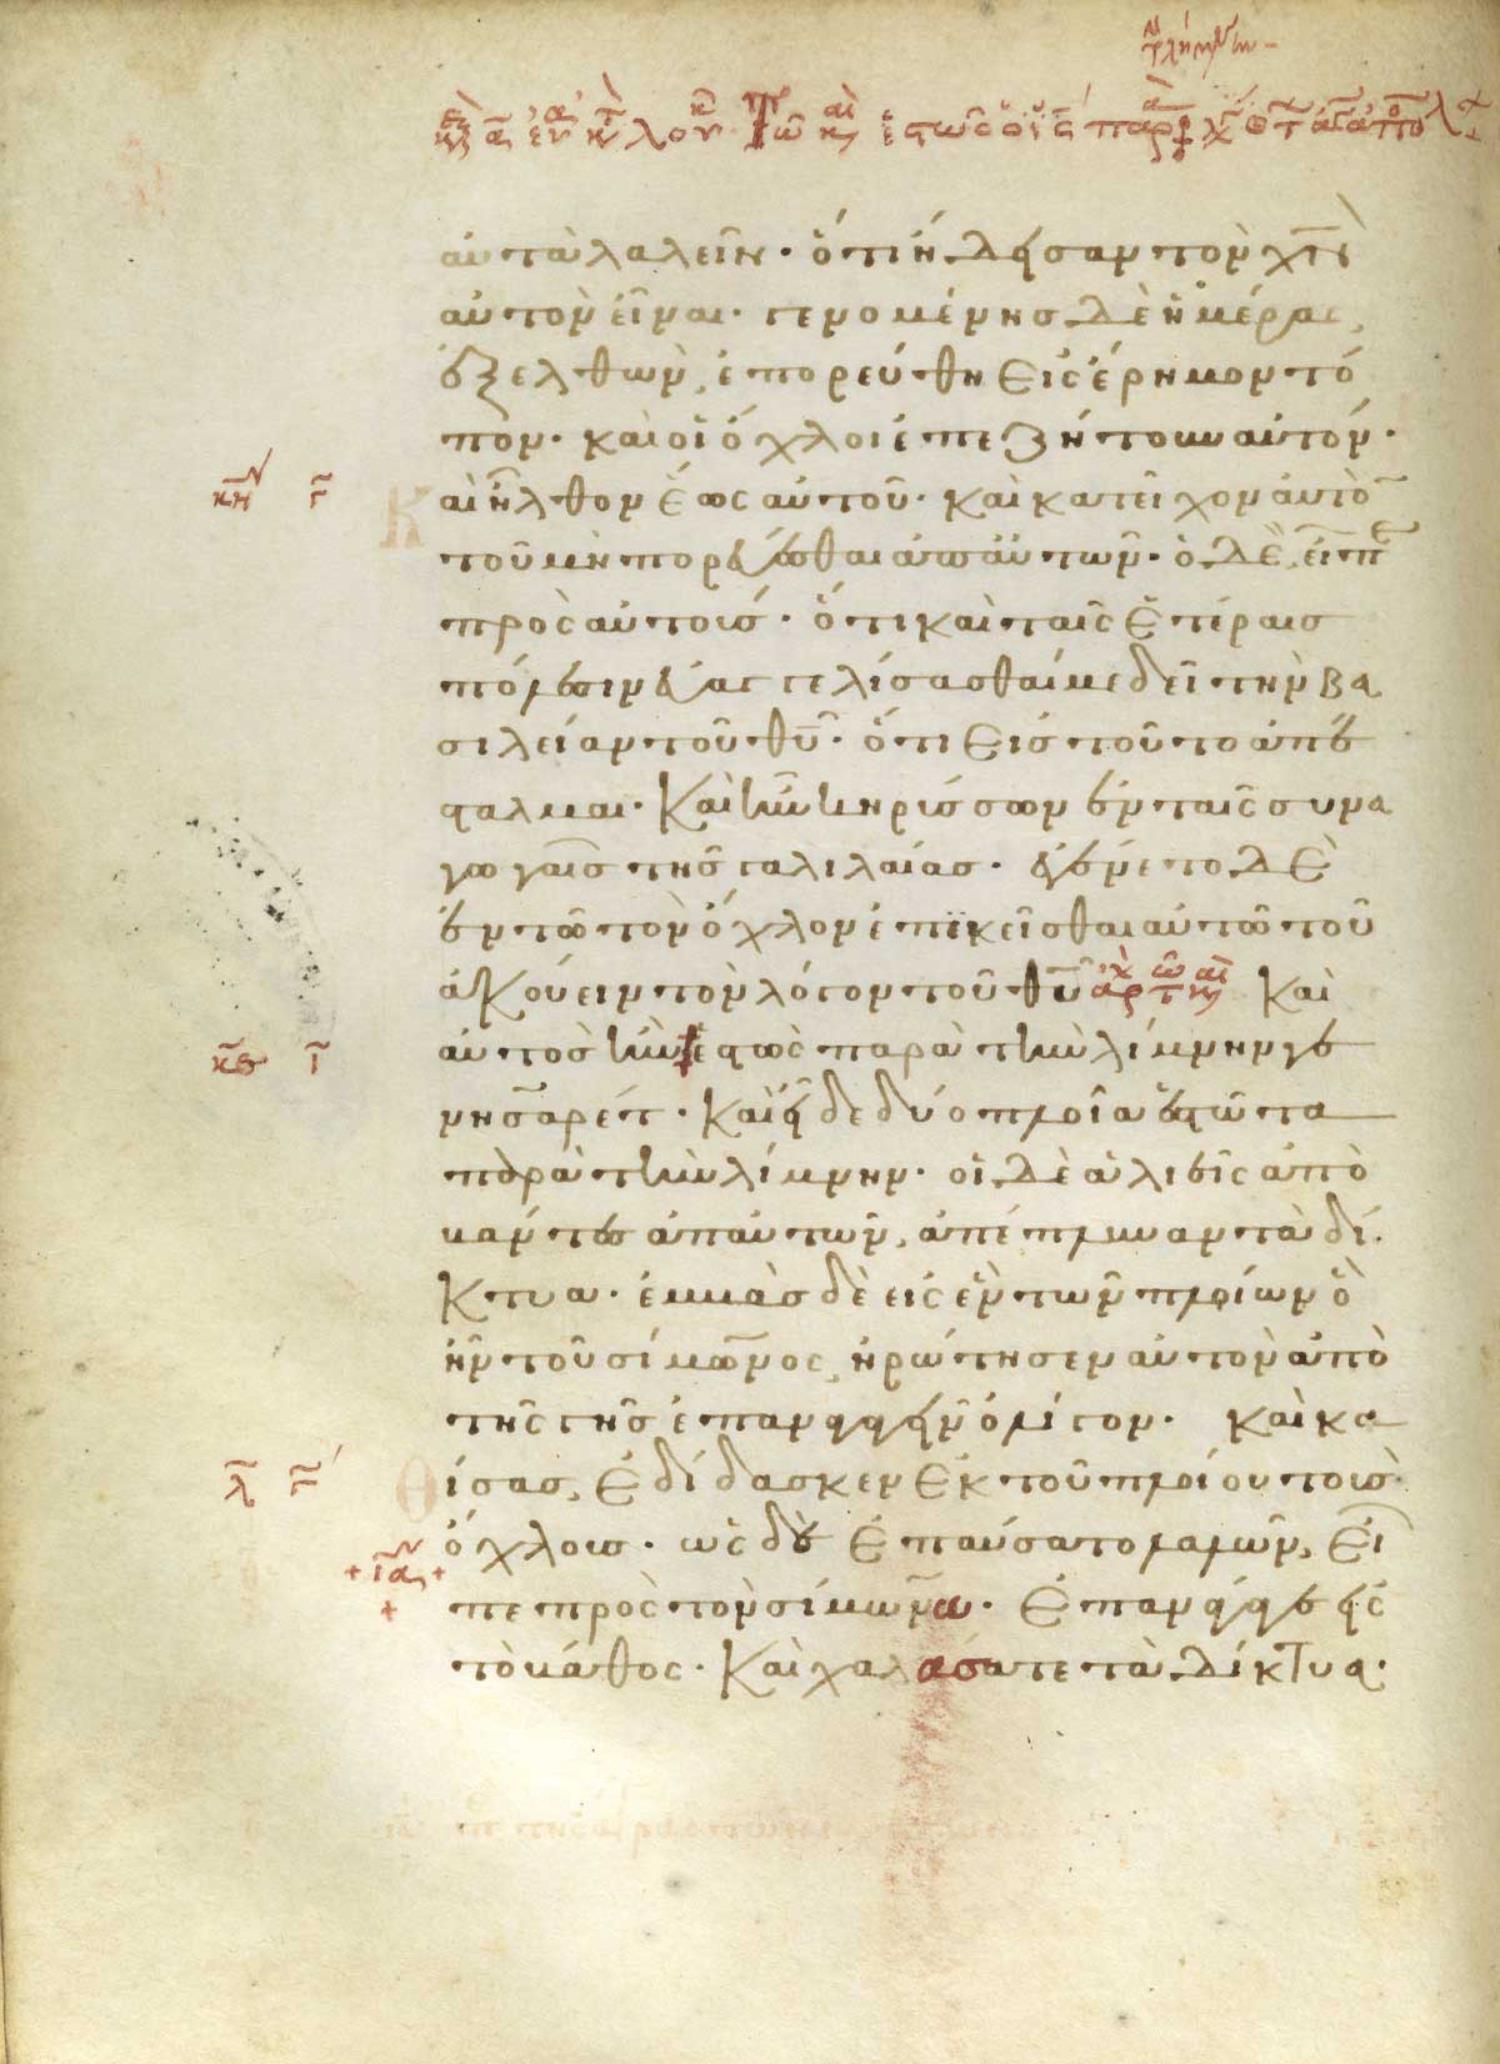 αὐτὰ λαλεῖν· ὅτι ἤδησαν τὸν χν
αὐτὸν εἶναι· γενομένης δὲ ἡμέρας,
ἐξελθὼν, ἐπορεύθη εἰς ἔρημον τό
πον· καὶ οἱ ὄχλοι ἐπεζήτουν αὐτόν·
κη γ Καὶ ἦλθον ἕως αὐτοῦ· καὶ κατεῖχον αὐτὸ
τοῦ μὴ πορεύεσθαι ἀπ' αὐτῶν· ὁ δὲ, εἶπε
πρὸς αὐτούς· ὅτι καὶ ταῖς ἑτέραις
πόλεσιν εὐαγγελίσασθαί με δεῖ τὴν βα
σιλείαν τοῦ θυ· ὅτι εἰς τοῦτο ἀπέ
σταλμαι· Καὶ ἦν κηρύσσων ἐν ταῖς συνα
γωγαῖς τῆς γαλιλαίας· ἐγένετο δὲ
ἐν τῶ τὸν ὄχλον ἐπικεῖσθαι αὐτῶ τοῦ
ἀκούειν τὸν λόγον τοῦ θυ Καὶ
κθ αὐτὸς ἦν ἑστὼς παρὰ τὴν λίμνην γε
νησαρέτ· Καὶ εἶδε δύο πλοῖα ἑστῶτα
παρὰ τὴν λίμνην· οἱ δὲ ἁλιεῖς ἀπο
βάντες ἀπ' αὐτῶν, ἀπέπλυναν τὰ δί
κτυα· ἐμβὰς δὲ εἰς ἓν τῶν πλοίων ὃ
ἦν τοῦ σίμωνος, ἠρώτησεν αὐτὸν ἀπὸ
τῆς γῆς ἐπαναγαγεῖν ὀλίγον· καὶ κα
λ Θίσας, ἐδίδασκεν ἐκ τοῦ πλοίου τοὺς
ὄχλους· ὡς δὲ ἐπαύσατο λαλῶν, εἶ
πε πρὸς τὸν σίμωνα· ἐπανάγαγε εἰς
τὸ βάθος· Καὶ χαλάσατε τὰ δίκτυα·